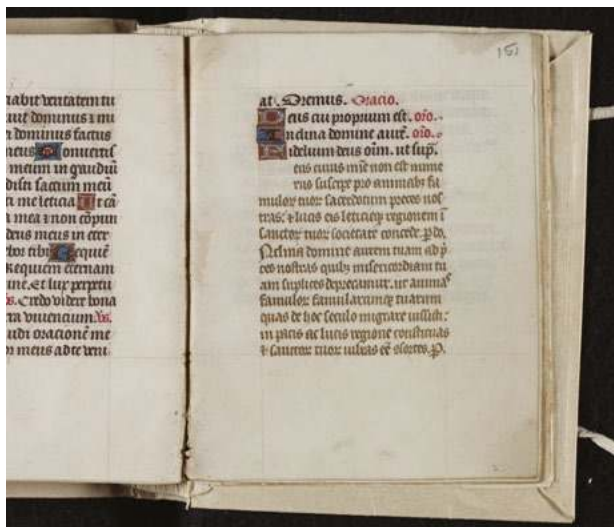 iabit veritatem tu
uit dominus ⁊ mi
i dominus factus
meus Conuertis
meum in gaudiū
disti saccum meū
ti me leticia Ut cā
a mea ⁊ non cōpun
deus meus in eter
ebor tibi Requiē
Requiem eternam
ine. Et lux perpetu
s. Credo videre bona
ra viuencium. Vs.
udi oracionē me
r meus ad te veni
151
at. Oremus. Oracio.
Deus cui proprium est. oro.
Inclina domine aurē. oro.
Fidelium deus oīm. ut sup.
eus cuius mīe non est nume
rus suscipe pro animabꝫ fa
muloꝝ tuoꝝ sacerdotum preces nos
tras: & lucis eis leticieqꝫ regionem ī
sanctoꝝ tuoꝝ societate concede. p. do.
Nclina domine aurem tuam ad p̄
ces nostras quibꝫ misericordiam tu
am suplices deprecamur. ut animas
famuloꝝ famularumqꝫ tuarum
quas de hoc seculo migrare iussisti:
in pacis ac lucis regione constituas
& sanctoꝝ tuoꝝ iubeas eē ꝯsortes. P.